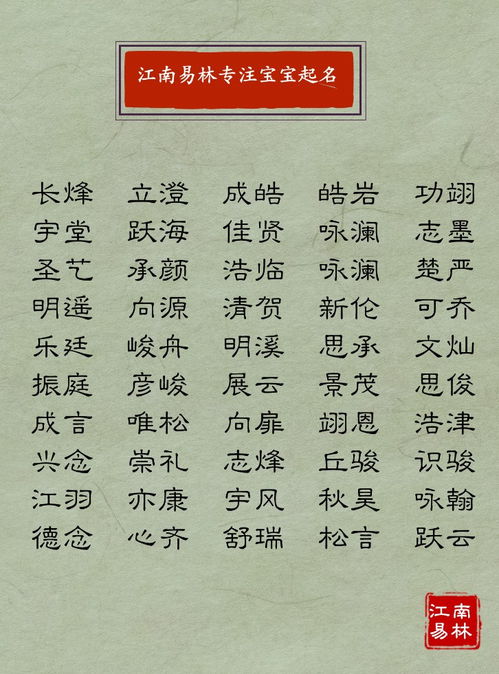 江南易林专注宝宝起名
长烽 立澄 成皓 皓岩 功翊
宇堂 跃海 佳贤 咏澜 志墨
圣艺 承颜 浩临 咏澜 楚严
明遥 向源 清贺 新伦 可乔
乐廷 峻舟 明溪 思承 文灿
振庭 彦峻 展云 景茂 思俊
成言 唯松 向扉 翊恩 浩津
兴念 崇礼 志烽 丘骏 识骏
江羽 亦康 宇风 秋昊 咏翰
德念 心齐 舒瑞 松言 跃云
江南
易林